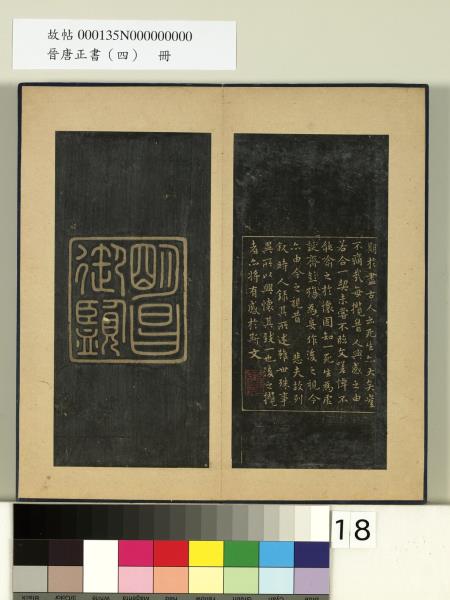 故帖 000135N000000000
晉唐正書（四） 冊
期於盡古人云死生亦大矣豈
不痛哉每攬昔人興感之由
若合一契未嘗不臨文嗟悼不
能喻之於懷固知一死生為虛
誕齊彭殤為妄作後之視今
亦由今之視昔 悲夫故列
敘時人錄其所述雖世殊事
異所以興懷其致一也後之攬
者亦將有感於斯文
明昌
御覽
18
Black 3/Color White Magenta Red Yellow Green Cyan